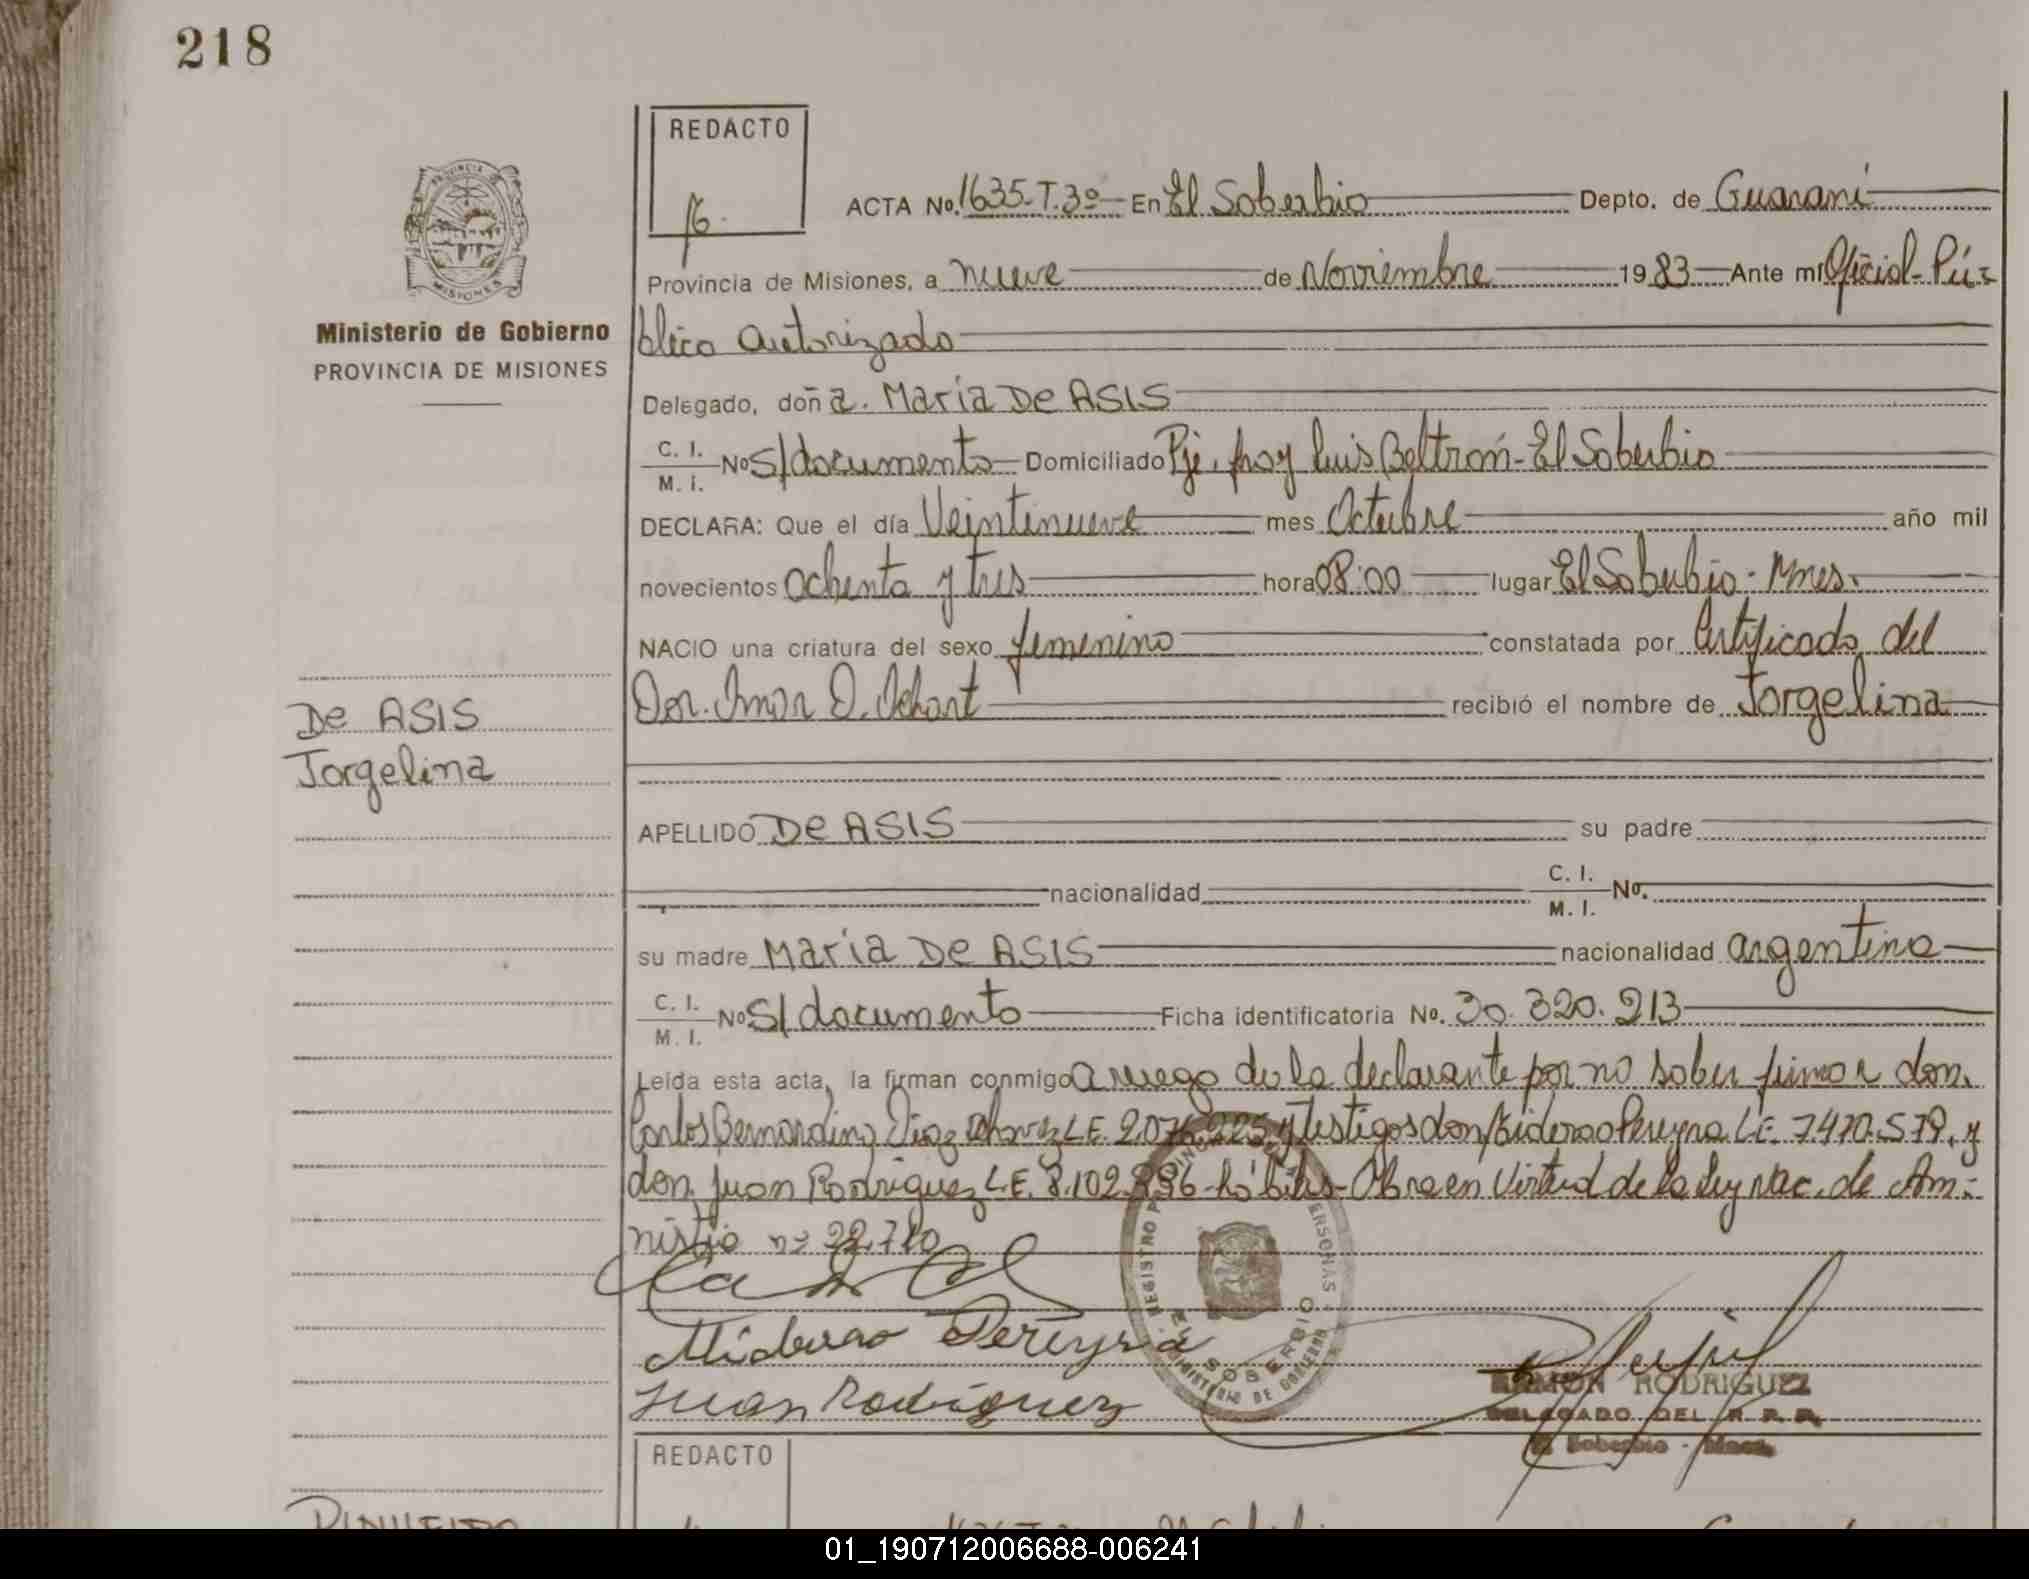 218
REDACTO
ACTA No. 1635-T.3º En El Soberbio Depto. de Guaraní
Provincia de Misiones, a nueve de Noviembre 1983 Ante mí Oficial Pú-
Ministerio de Gobierno
PROVINCIA DE MISIONES
blico autorizado
Delegado, doña. María De ASIS
C. I.
M. I.
No S/documento Domiciliado Pje. fray Luis Beltrán - El Soberbio
DECLARA: Que el día Veintinueve mes Octubre año mil
novecientos ochenta y tres hora 08:00 lugar El Soberbio - Mnes.
NACIO una criatura del sexo femenino constatada por Certificado del
De ASIS
Jorgelina
recibió el nombre de Jorgelina
APELLIDO De ASIS su padre
nacionalidad C. I.
M. I.
No.
su madre María De ASIS nacionalidad argentina
C. I.
M. I.
No S/documento Ficha identificatoria No. 30.320.213
Leída esta acta, la firman conmigo a ruego de la declarante por no saber firmar don.
Carlos Bernardino Díaz Chavez L.E. 2.076.225 y testigos don Pereyra L.E. 7.470.579, y
don. Juan Rodriguez L.E. 8.102.896 - hábiles - Obra en Virtud de la Ley Nac. de Am-
nistía nº 22.710
Pereyra
Juan Rodriguez
REGISTRO PERSONAS
EL SOBERBIO
MINISTERIO DE GOBIERNO
RAMON RODRIGUEZ
DELEGADO DEL R. P. P.
El Soberbio - Mnes.
REDACTO
01_190712006688-006241